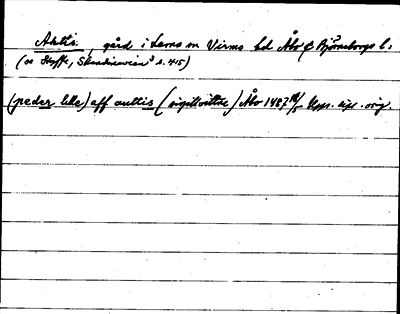 Aktis, gård i Lemo sn Virmo hd Åbo & Björneborgs l.
(se Styffe, Skandinavien³ s. 415)
(peder lille) aff auttis (sigillvittne) Åbo 1487 Upps. dipl. orig.